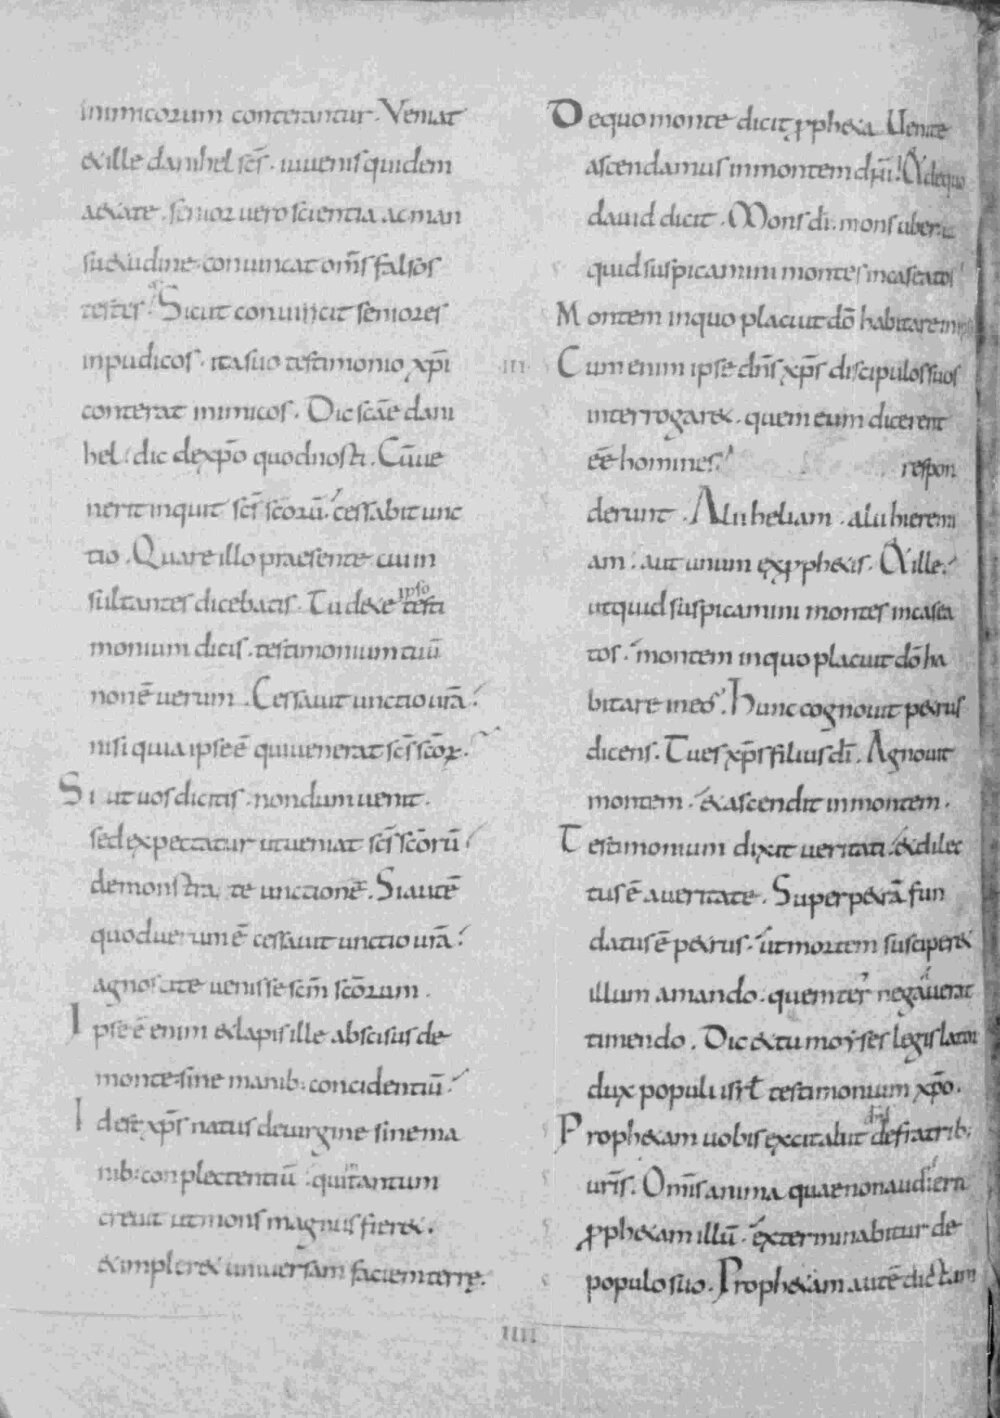 inimicorum conterantur. Veniat
& ille danihel sc̄s. iuuenis quidem
aetate. senior uero scientia ac man
suetudine. conuincat om̄s falsos
testes. Sicut conuincit seniores
inpudicos. ita suo testimonio xp̄i
conterat inimicos. Dic scāe dani
hel: dic de xp̄o quod nosti. Cū ue
nerit inquit sc̄s sc̄orū. cessabit unc
tio. Quare illo praesente cui in
sultantes dicebatis. Tu de te ipso testi
monium dicis. testimonium tuū
non ē uerum. Cessauit unctio ur̄a.
nisi quia ipse ē qui uenerat sc̄s sc̄or.
Si ut uos dicitis. nondum uenit.
sed expectatur ut ueniat sc̄s sc̄orū
demonstrate unctionē. Si autē
quod uerum ē cessauit unctio ur̄a.
agnoscite uenisse sc̄m sc̄orum.
Ipse ē enim & lapis ille abscisus de
monte. sine manib: concidentiū.
Id est xp̄s natus de uirgine sine ma
nib: conplectentiū. qui tantum
creuit ut mons magnus fieret.
& impleret uniuersam faciem terrę.
De quo monte dicit ꝓpheta. Uenite
ascendamus in montem dn̄i. & de quo
dauid dicit. Mons dī. mons uber. ut
quid suspicamini montes incaseatos
Montem in quo placuit dō habitare in
III Cum enim ipse dn̄s xp̄s discipulos suos
interrogaret. quem eum dicerent
eē homines. respon
derunt. Alii heliam. alii hieremi
am. aut unum ex ꝓphetis. & ille.
ut quid suspicamini montes incasea
tos. montem in quo placuit dō ha
bitare in eo. Hunc cognouit petrus
dicens. Tu es xp̄s filius dī. Agnouit
montem. & ascendit in montem.
Testimonium dixit ueritati. & dilec
tus ē a ueritate. Super petrā fun
datus ē petrus. ut mortem susciperet
illum amando. quem ter negauerat
timendo. Dic & tu moyses legislator
dux populi isr̄l testimonium xp̄o.
Prophetam uobis excitabit dn̄s de fratrib:
ur̄is. Om̄is anima quae non audierit
ꝓphetam illū. exterminabitur de
populo suo. Prophetam autē dictam
IIII